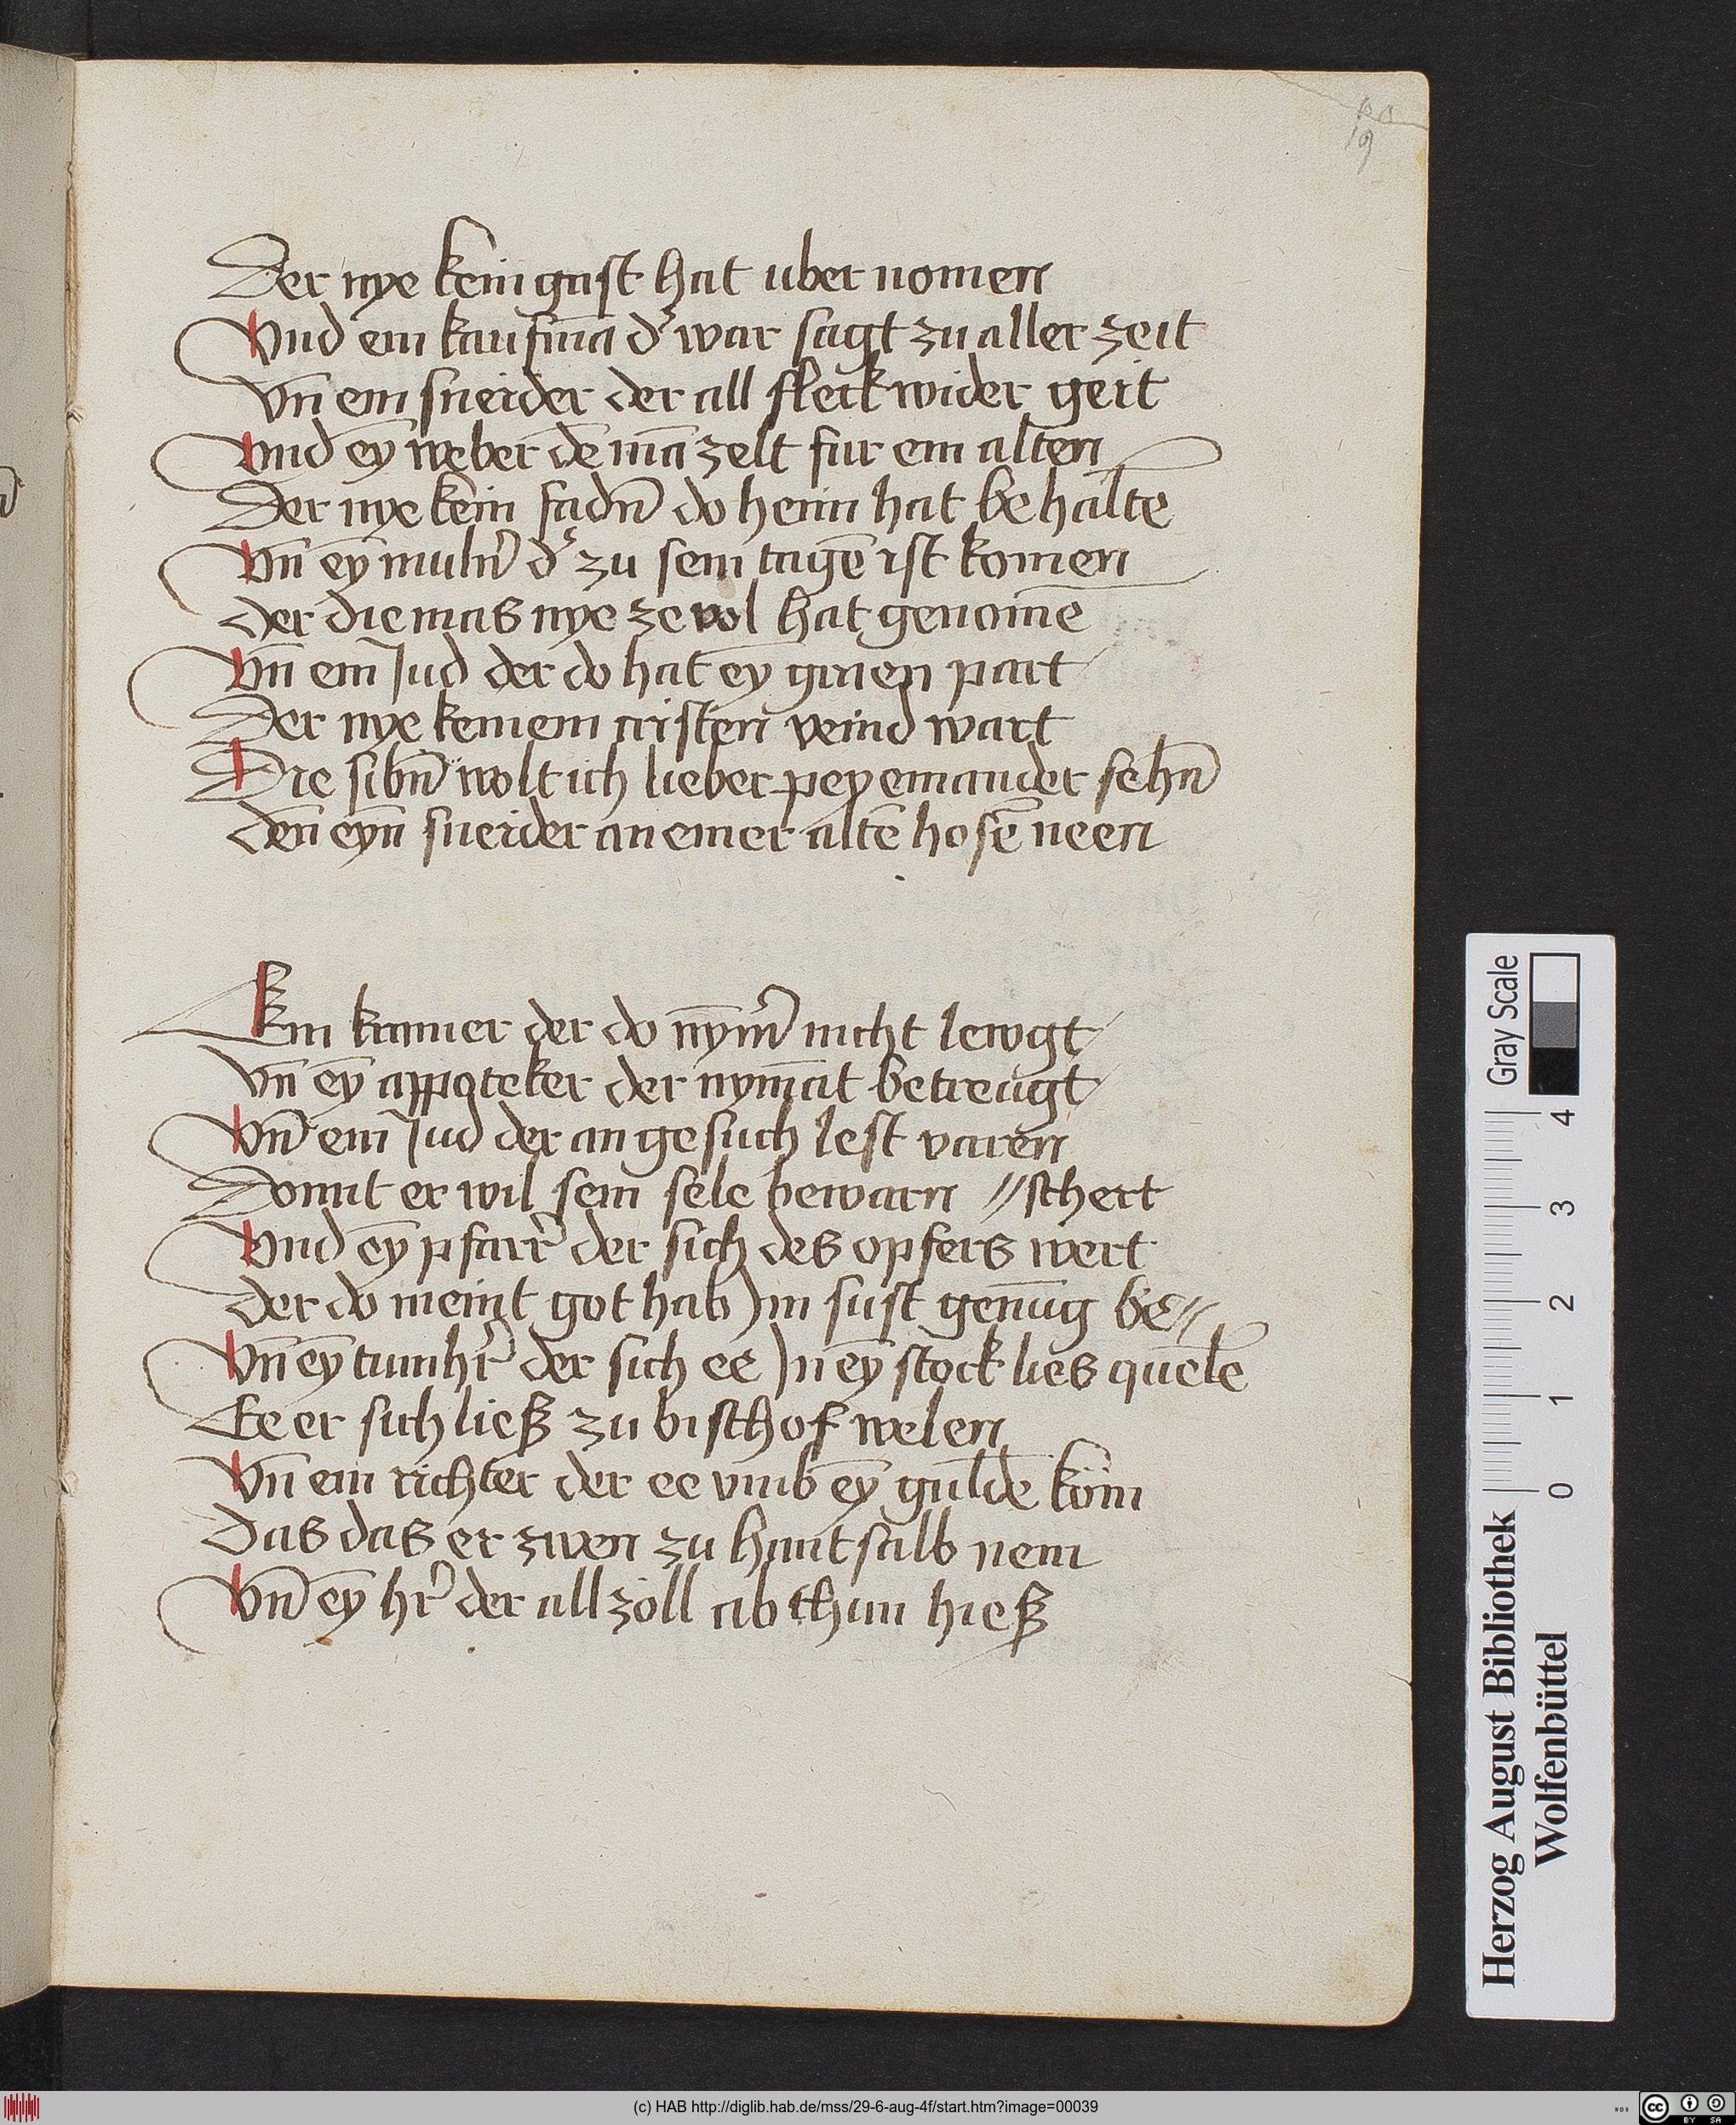 19
Der nye kein gast hat uber nomen
Vnd ein kaufmā dʾ war sagt zu aller zeit
Vn̄ ein sneider der all fleck wider geit
Vnd eȳ weber dē mā zelt fur ein alten
Der nye kein fadn̄ do heim hat behaltē
Vn̄ eȳ mulnʾ dʾ zu sein tagē ist komen
der die mas nye ze vol hat genomē
Vn̄ ein Jud der do hat eȳ gruen part
Der nye keinem cristen veind wart
Die sibn̄ wolt ich lieber pey einander sehn̄
den̄ eyn̄ sneider an einer altē hosē neen
Ein kramer der do nȳmʾ nicht lewgt
Vn̄ eȳ appoteker der nymāt betreugt
Vn̄ ein Jud der an gesuch lest varen
Domit er wil sein sele bewarn // schert
Vnd eȳ pfarrʾ der sich des opfers wert
der do meint got hab Jm sust genūg be //
Vn̄ eȳ tumhrʾ der sich ee Jn eȳ stock lies quelē
Ee er sich ließ zu bischof welen
Vn̄ ein richter der ee vmb eȳ guldē köm
Das das er zwen zu hantsalb nem
Vn̄ eȳ hrʾ der all zöll ab thun hieß
Gray Scale
4
3
2
1
0
Herzog August Bibliothek
Wolfenbüttel
(c) HAB http://diglib.hab.de/mss/29-6-aug-4f/start.htm?image=00039
BY SA